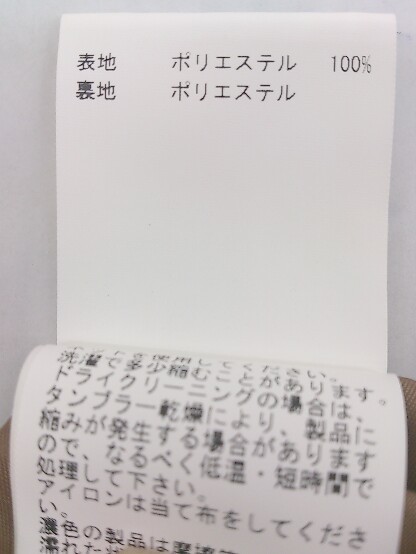 表地 ポリエステル 100%
裏地 ポリエステル
使用してください。
洗濯で多少縮むことがあります。
ドライクリーニングの場合は、
タンブラー乾燥により、製品に
縮みが発生する場合があります
ので、なるべく低温・短時間で
処理して下さい。
アイロンは当て布をしてくださ
い。
濃色の製品は摩擦
濡れた